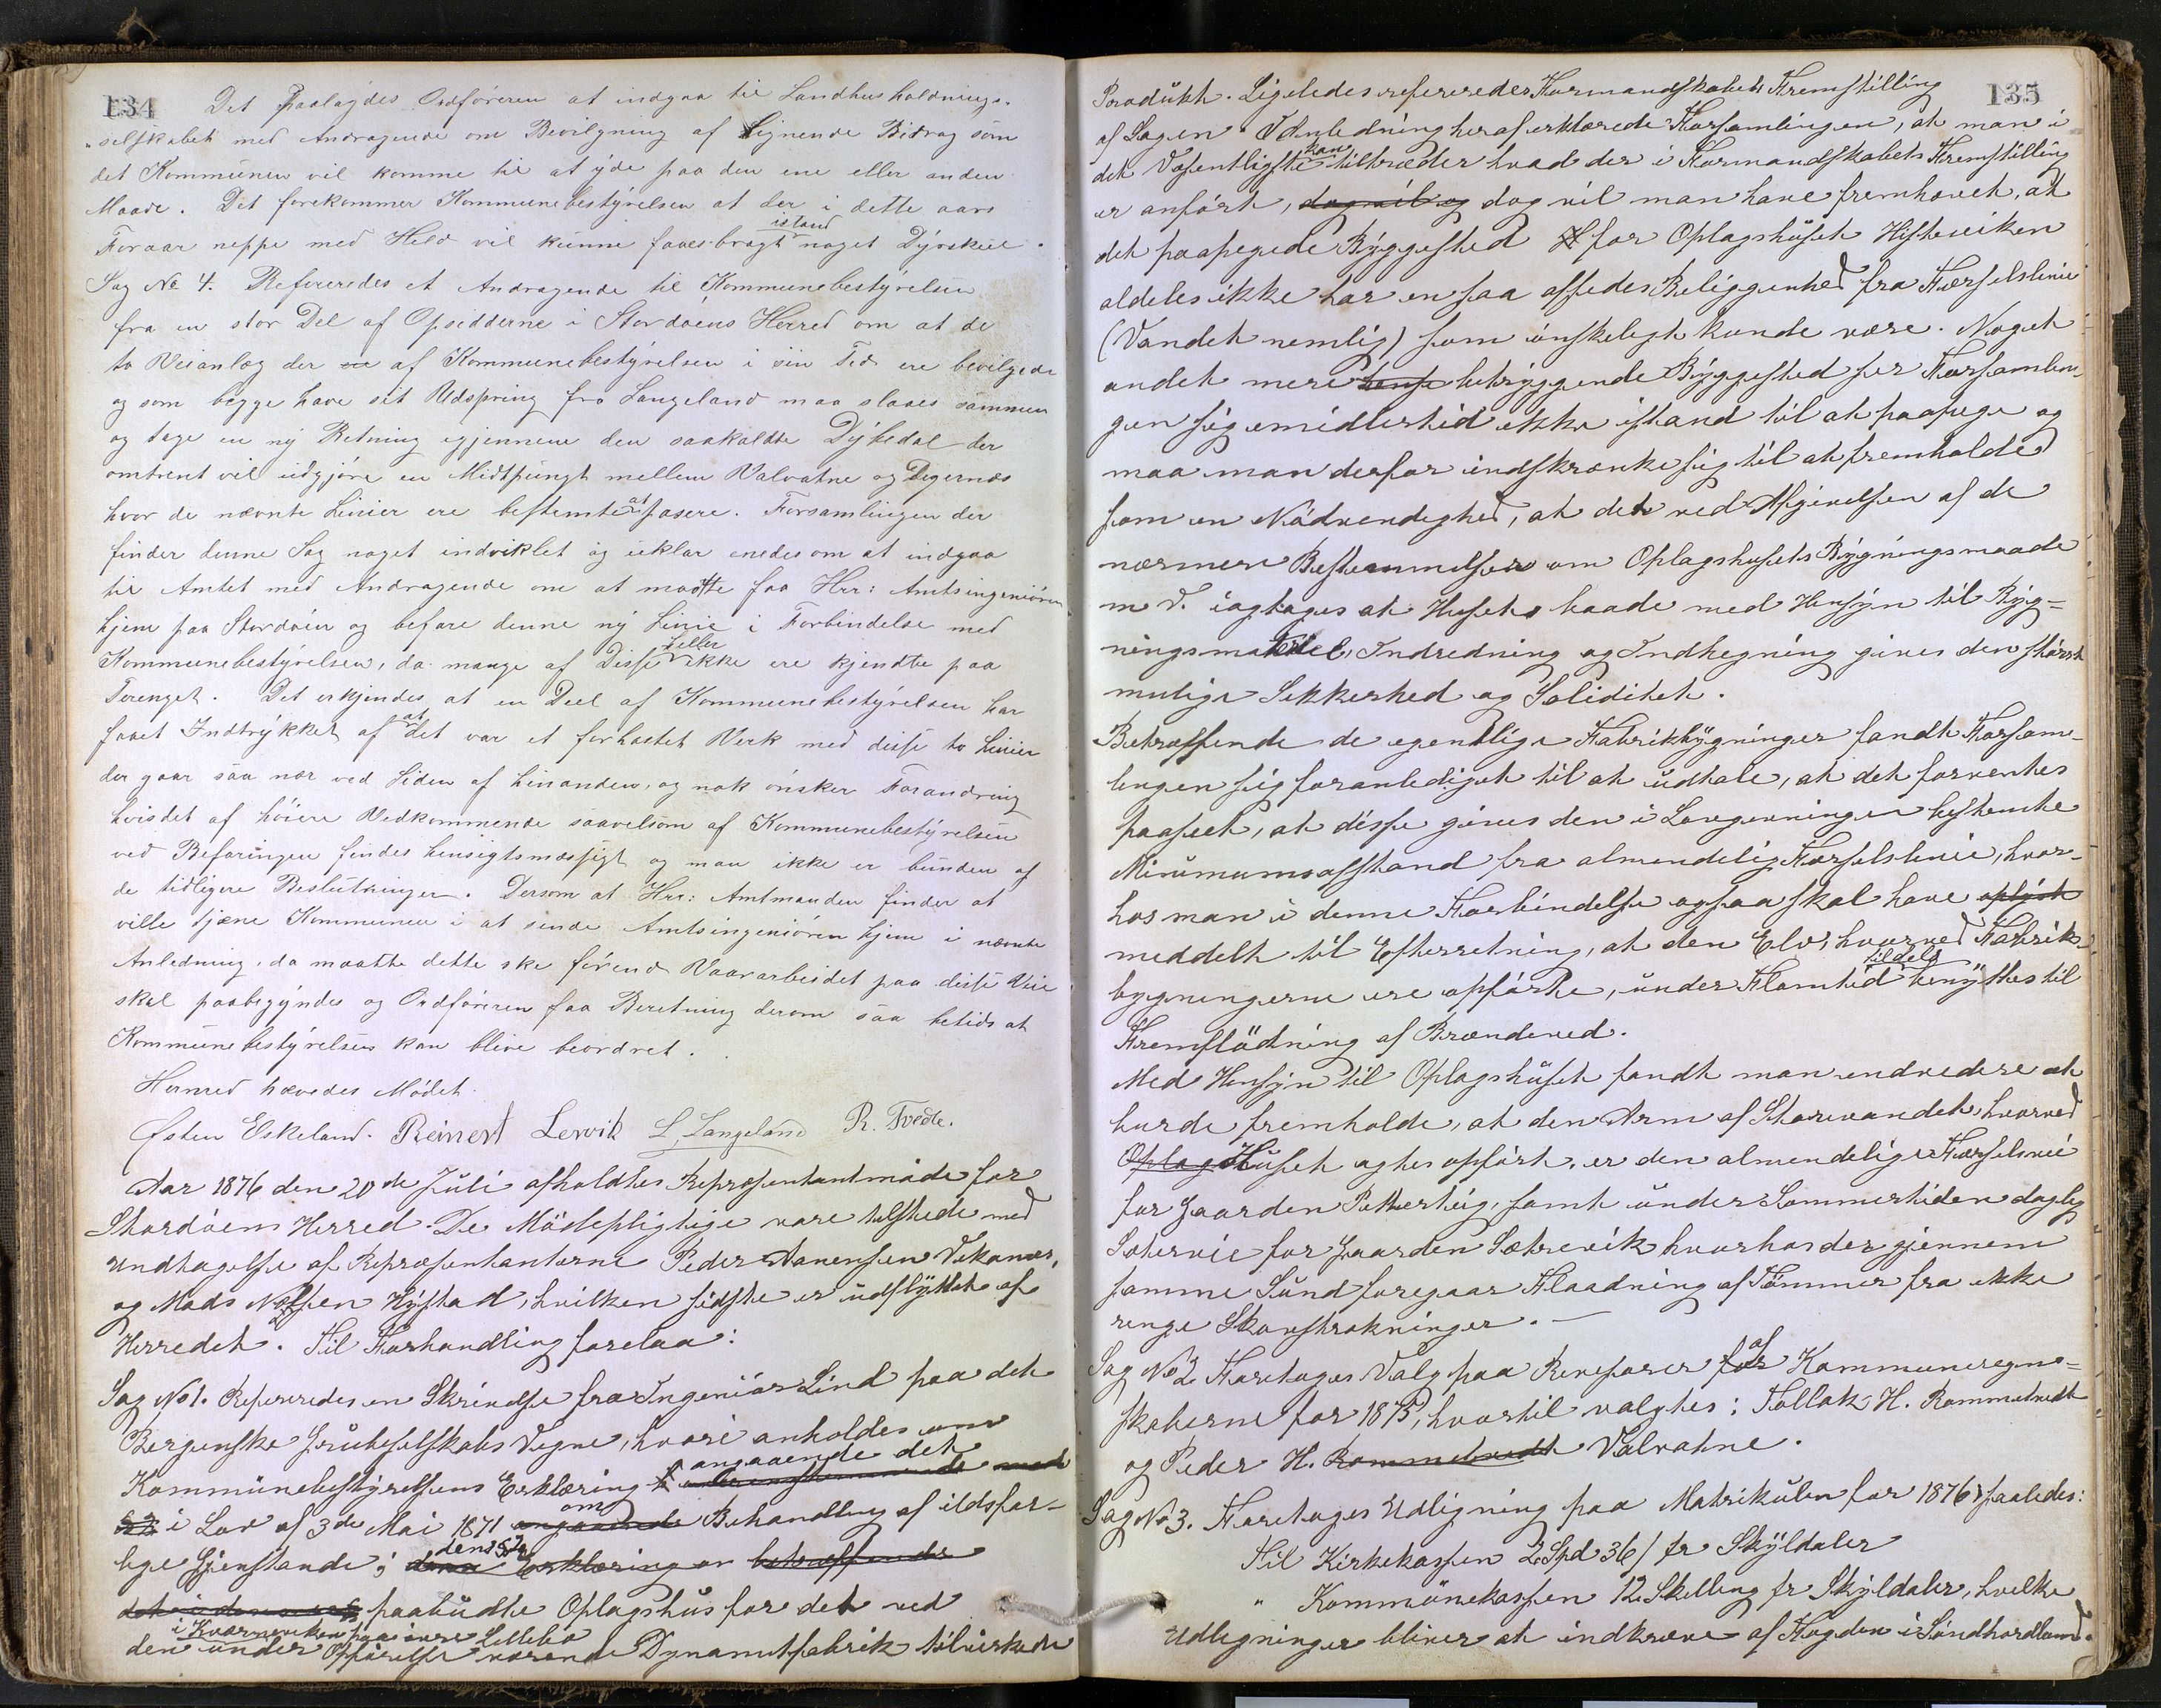 134
Det paalagdes Ordføreren at indgaa til Landhusholdnings-
selskabet med Andragende om Bevilgning af lignende Bidrag som
det Kommunen vil komme til at yde paa den ene eller anden
Maade. Det forekommer Kommunebestyrelsen at der i dette aars
Foraar neppe med Held vil kunne faaes bragt istand noget Dyrskue.
Sag No 4. Refereredes et Andragende til Kommunebestyrelsen
fra en stor Del af Opsidderne i Stordøens Herred om at de
to Veianlæg der af Kommunebestyrelsen i sin Tid ere bevilgede
og som begge have sit Udspring fra Langeland maa slaaes sammen
og tage en ny Retning igjennem den saakaldte Dybedal der
omtrent vil udgjøre en Midtpungt mellem Valvatne og Degernæs
hvor de nævnte Linier ere bestemte at pasere. Forsamlingen der
finder denne Sag noget indviklet og uklar enedes om at indgaa
til Amtet med Andragende om at maatte faa Hrr: Amtsingeniøren
hjem paa Stordøen og befare denne ny Linie i Forbindelse med
Kommunebestyrelsen, da mange af Disse heller ikke ere kjendte paa
Terenget. Det erkjendes at en Deel af Kommunebestyrelsen har
faaet Indtrykket af at det var et forhastet Verk med disse to Linier
der gaar saa nær ved Siden af hinanden, og nok ønsker Forandring
hvis det af høiere Vedkommende saavelsom af Kommunebestyrelsen
ved Befaringen findes hensigtsmæssigt og man ikke er bunden af
de tidligere Beslutninger. Dersom at Hrr: Amtmanden finder at
ville tjene Kommunen i at sende Amtsingeniøren hjem i nævnte
Anledning, da maatte dette ske førend Vaararbeidet paa disse Veie
skal paabegyndes og Ordføreren faa Beretning derom saa betids at
Kommunebestyrelsen kan blive beordret.
Hermed hævedes Mødet.
Østen Eskeland. Reinert Lervik L. Langeland R. Tvedte.
Aar 1876 den 20de Juli afholdtes Repræsentantmøde for
Stordøens Herred. De Mødepligtige vare tilstede med
Undtagelse af Repræsentanterne Peder Aanensen Vikanæs,
og Mads Nilsen Hystad, hvilken sidste er udflyttet af
Herredet. Til Forhandling forelaa:
Sag No 1. Refereredes en Skrivelse fra Ingeniør Lind paa det
Bergenske Grubeselskabs Vegne, hvori anholdes om
Kommunebestyrelsens Erklæring angaaende det
i Lov af 3de Mai 1871 om Behandling af ildsfar-
lige Gjenstande, dens § 2
paabudte Oplagshus for det ved
den i Kværneviken paa indre Lillebø under Opførelse værende Dynamitfabrik tilvirkede
135
Produkt. Ligeledes refereredes Formandskabets Fremstilling
af Sagen. I Anledning heraf erklærede Forsamlingen, at man i
det Væsentligste kan tiltræder hvad der i Formandskabets Fremstilling
er anført, dog vil og dog vil man have fremhævet, at
det paapegede Byggested for Oplagshuset Histeviken
aldeles ikke har en saa affedes Beliggenhed fra Færselslinie
(Vandet nemlig) som ønskeligt kunde være. Noget
andet mere betryggende Byggested ser Forsamlin-
gen sig emidlertid ikke istand til at paapege og
maa man derfor indskrænke sig til at fremholde
som en Nødvendighed, at det ved Afgivelsen af de
nærmere Bestemmelser om Oplagshusets Bygningsmaade
m. V. iagtages at Huset baade med Hensyn til Byg-
ningsmateriel, Indredning og Indhegning gives den størst
mulige Sikkerhed og Soliditet.
Betræffende de egentlige Fabrikbygninger fandt Forsam-
lingen sig foranlediget til at udtale, at det forventes
paaseet, at disse gives den i Lovgivningen bestemte
Minimumsafstand fra almendelig Færselslinie, hvor-
hos man i denne Forbindelse ogsaa skal have oplyst
meddelt til Efterretning, at den Elv, hvorved Fabrik-
bygningerne ere opførte, under Flomtid tildels benyttes til
Fremflødning af Brændeved.
Med Hensyn til Oplagshuset fandt man endvidere at
burde fremholde, at den Arm af Storevandet, hvorved
Oplag Huset agtes opført, er den almendelige Færselsvei
for Gaarden Petterteig, samt under Sommertiden daglig
Sætervei for Gaarden Sætrevik hvorhos der gjennem
samme Sund foregaar Flaadning af Tømmer fra ikke
ringe Skovstrækninger. —
Sag No 2. Foretoges Valg paa Revisorer af Kommuneregn-
skaberne for 1875, hvortil valgtes: Tollak H. Rommetvedt
og Peder H. Rommetvedt Valvatne.
Sag No 3. Foretoges Udligning paa Matrikulen for 1876 saaledes:
Til Kirkekassen 2 Spd 36 / pr Skyldaler
" Kommunekassen 12 Skilling pr Skyldaler, hvilke
Udligninger bliver at indkræve af Fogden i Søndhordland.